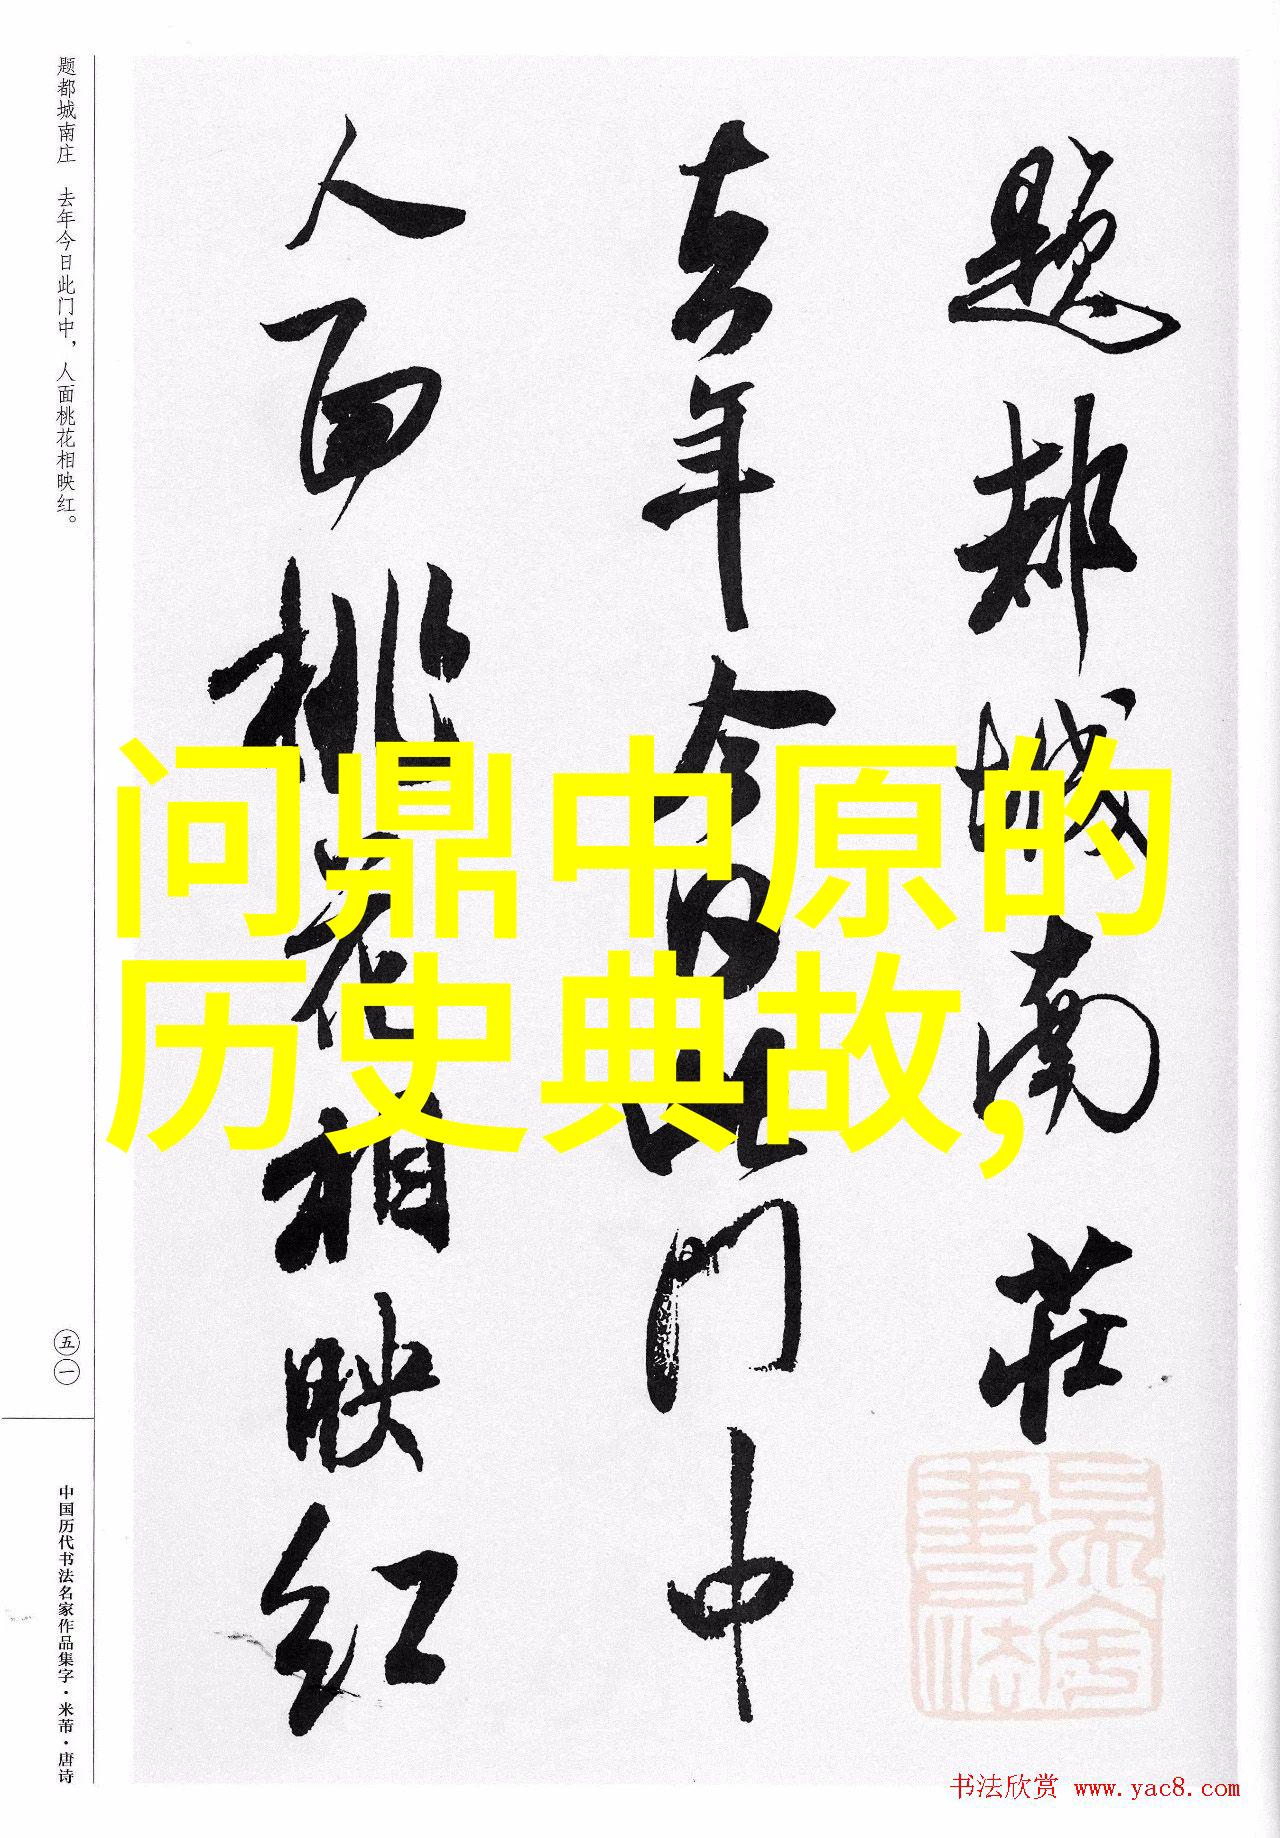 题都城南庄　去年今日此门中，人面桃花相映红。
題都城南莊
去年今日此门中
人面桃花相映红
问鼎中原的
历史典故，
五一
中国历代书法名家作品集字·米芾·唐诗
书法欣赏 www.yac8.com